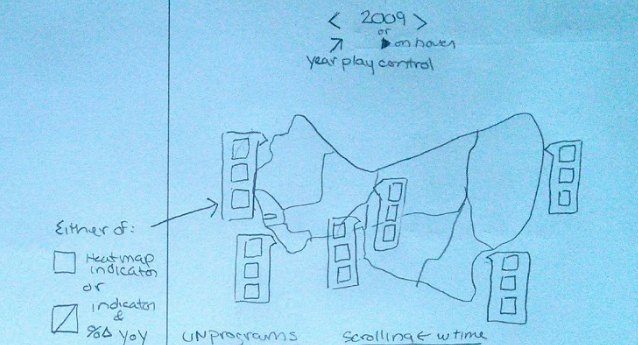 < 2009 >
or
▶ on hover
year play control
Either of:
Heatmap
indicator
or
indicator
&
%Δ yoy
UN programs
Scrolling ← w time